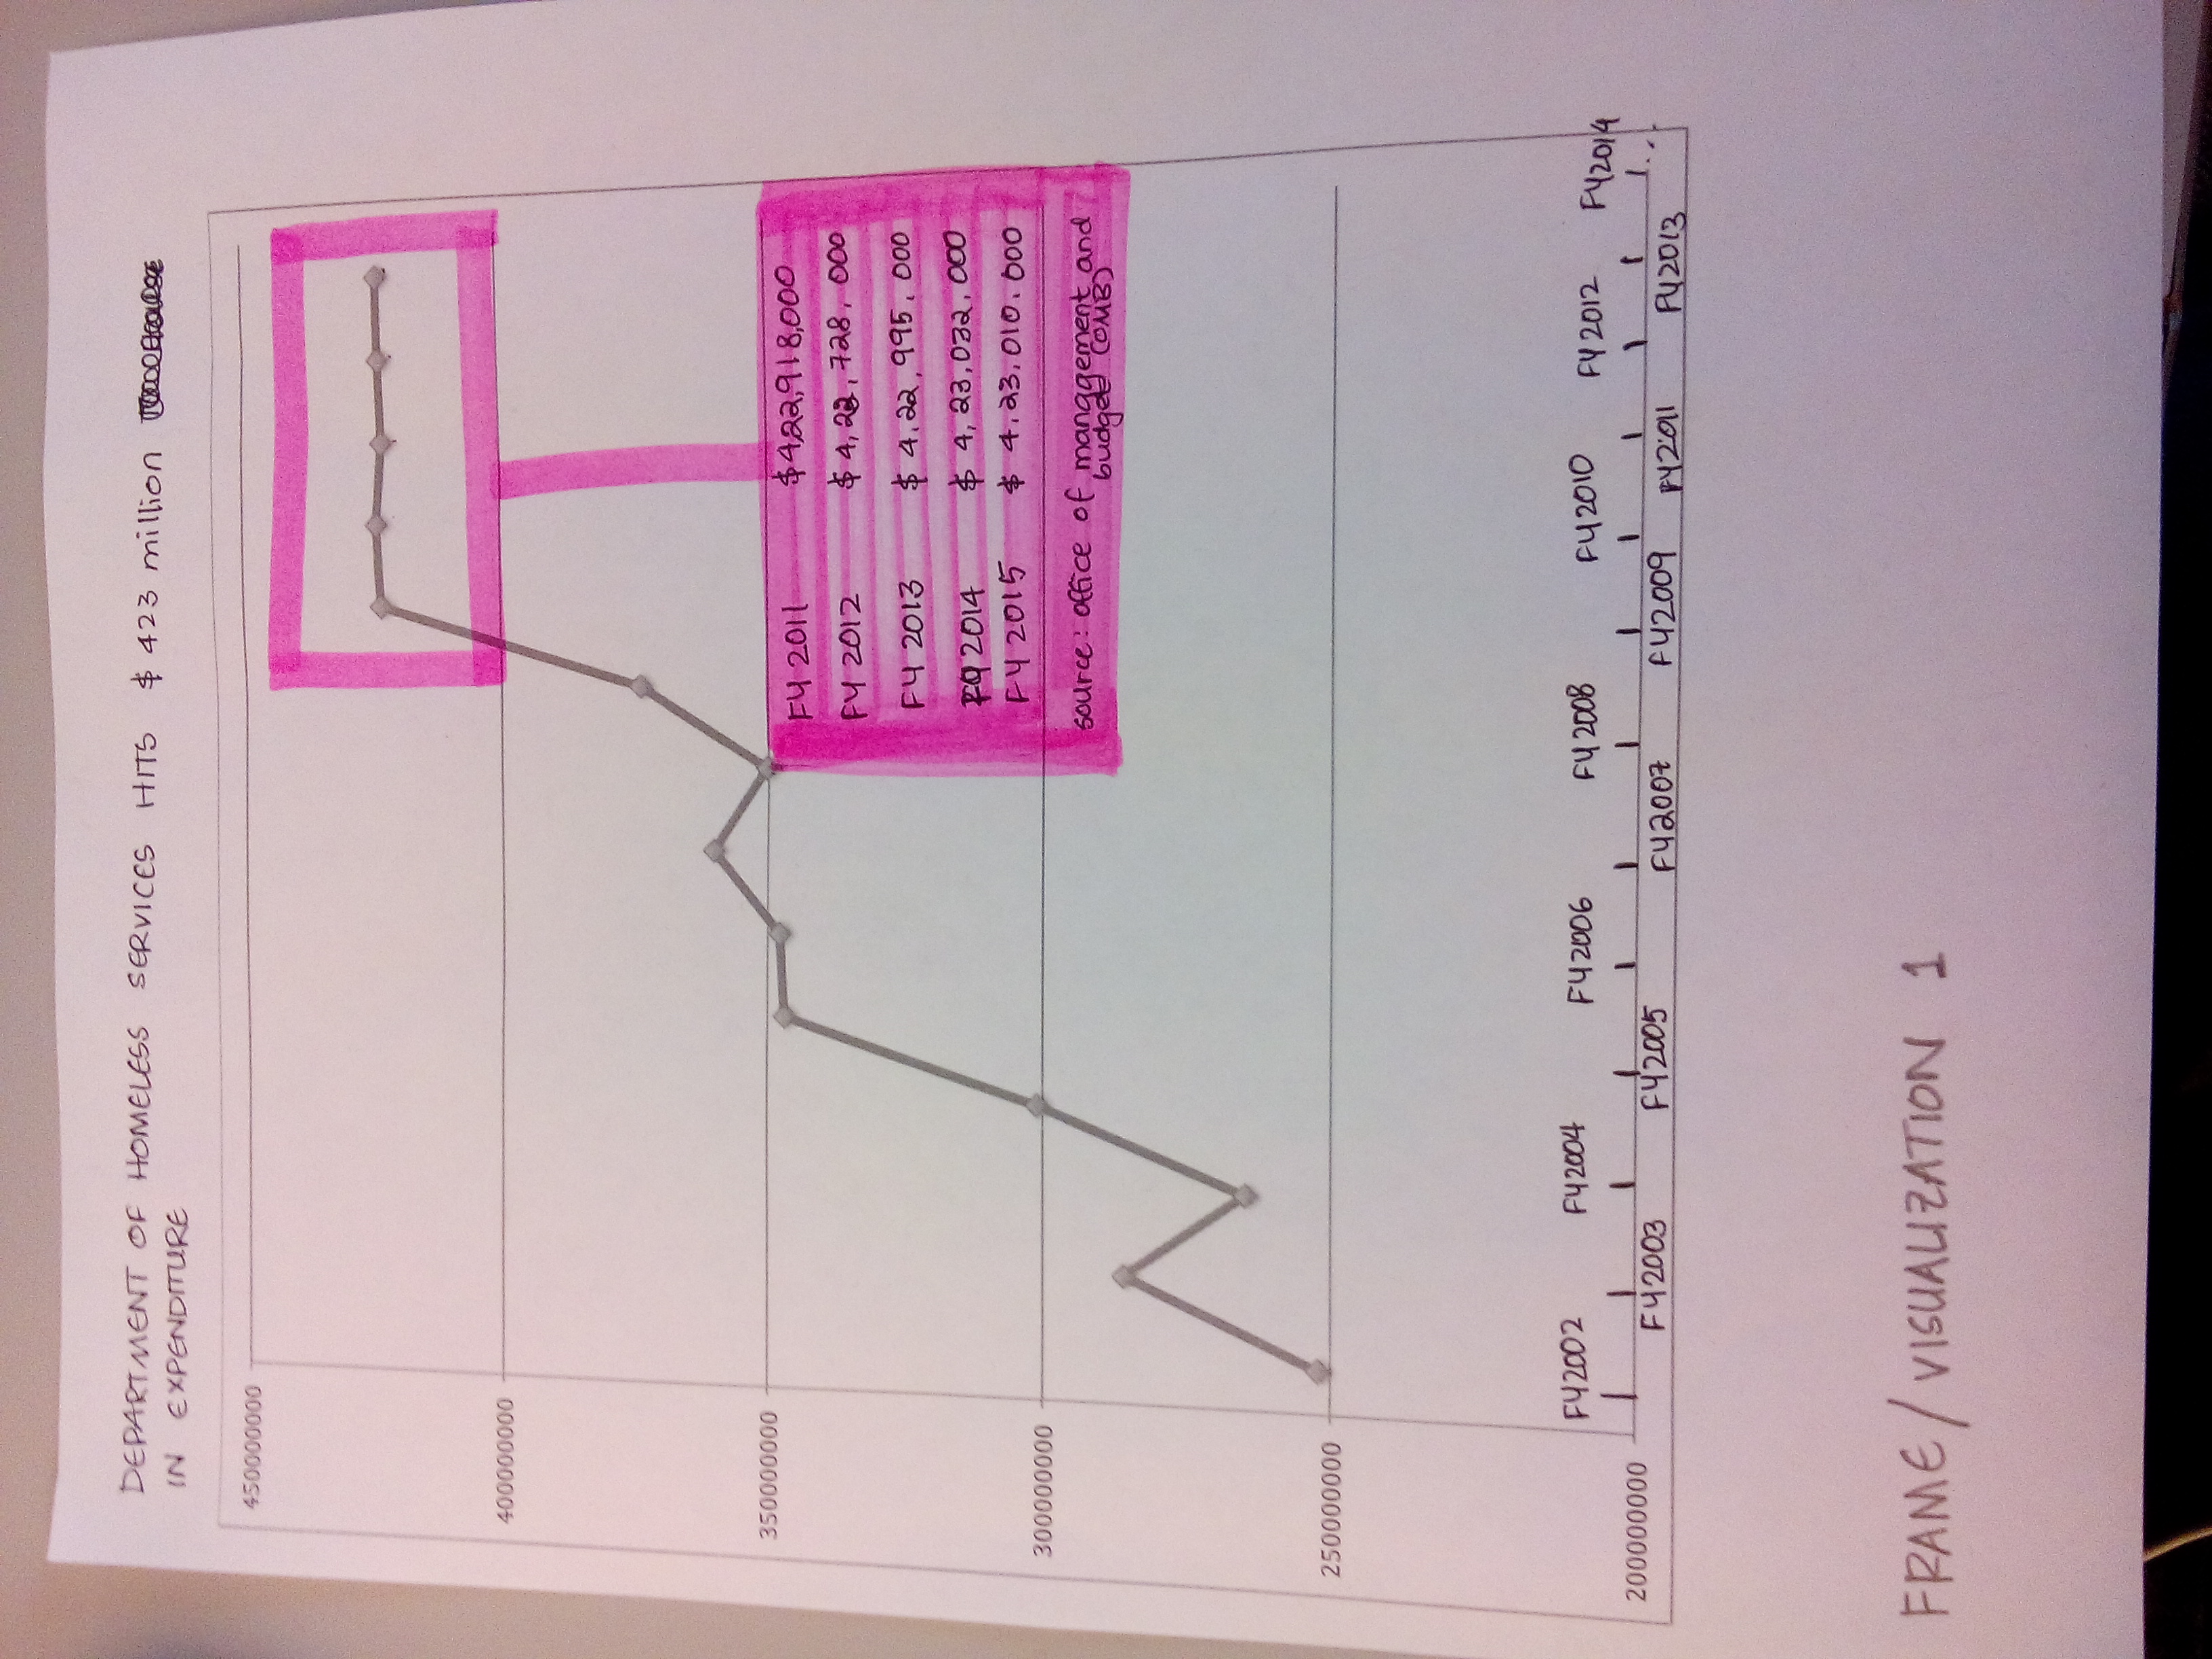 DEPARTMENT OF HOMELESS SERVICES HITS $ 423 million
IN EXPENDITURE
450000000
400000000
350000000
300000000
250000000
200000000
FY 2011 $422,918,000
FY 2012 $ 4,22,728,000
FY 2013 $ 4,22,995,000
FY 2014 $ 4,23,032,000
FY 2015 $ 4,23,010.000
source: office of manggement and
budget (OMB)
FY2002 FY2004 FY2006 FY2008 FY2010 FY2012 FY2014
FY2003 FY2005 FY2007 FY2009 FY2011 FY2013
FRAME/VISUALIZATION 1